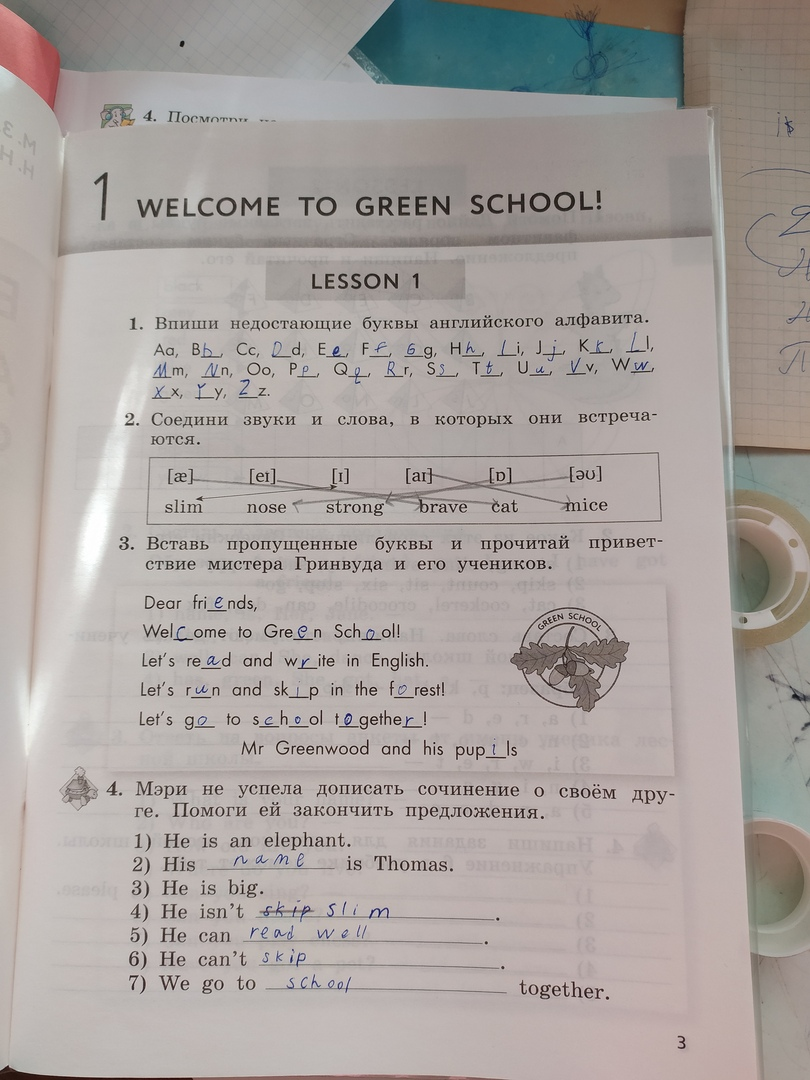 4. Посмотри
1 WELCOME TO GREEN SCHOOL!
LESSON 1
1. Впиши недостающие буквы английского алфавита.
Aa, Bb, Cc, Dd, Ee, Ff, Gg, Hh, Ii, Jj, Kk, Ll,
Mm, Nn, Oo, Pp, Qq, Rr, Ss, Tt, Uu, Vv, Ww,
Xx, Yy, Zz.
2. Соедини звуки и слова, в которых они встреча-
ются.
[æ] [eɪ] [ɪ] [aɪ] [ɒ] [əʊ]
slim nose strong brave cat mice
3. Вставь пропущенные буквы и прочитай привет-
ствие мистера Гринвуда и его учеников.
Dear friends,
Welcome to Green School!
Let's read and write in English.
Let's run and skip in the forest!
Let's go to school together!
Mr Greenwood and his pupils
GREEN SCHOOL
4. Мэри не успела дописать сочинение о своём дру-
ге. Помоги ей закончить предложения.
1) He is an elephant.
2) His name is Thomas.
3) He is big.
4) He isn't skip slim.
5) He can read well.
6) He can't skip.
7) We go to school together.
3